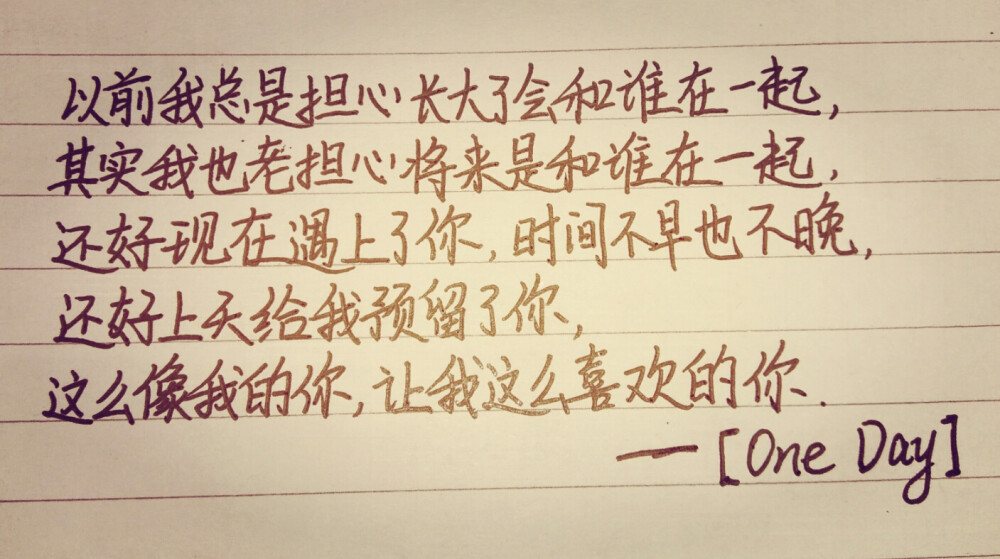 以前我总是担心长大了会和谁在一起,
其实我也老担心将来是和谁在一起,
还好现在遇上了你,时间不早也不晚,
还好上天给我预留了你,
这么像我的你,让我这么喜欢的你.
—[One Day]